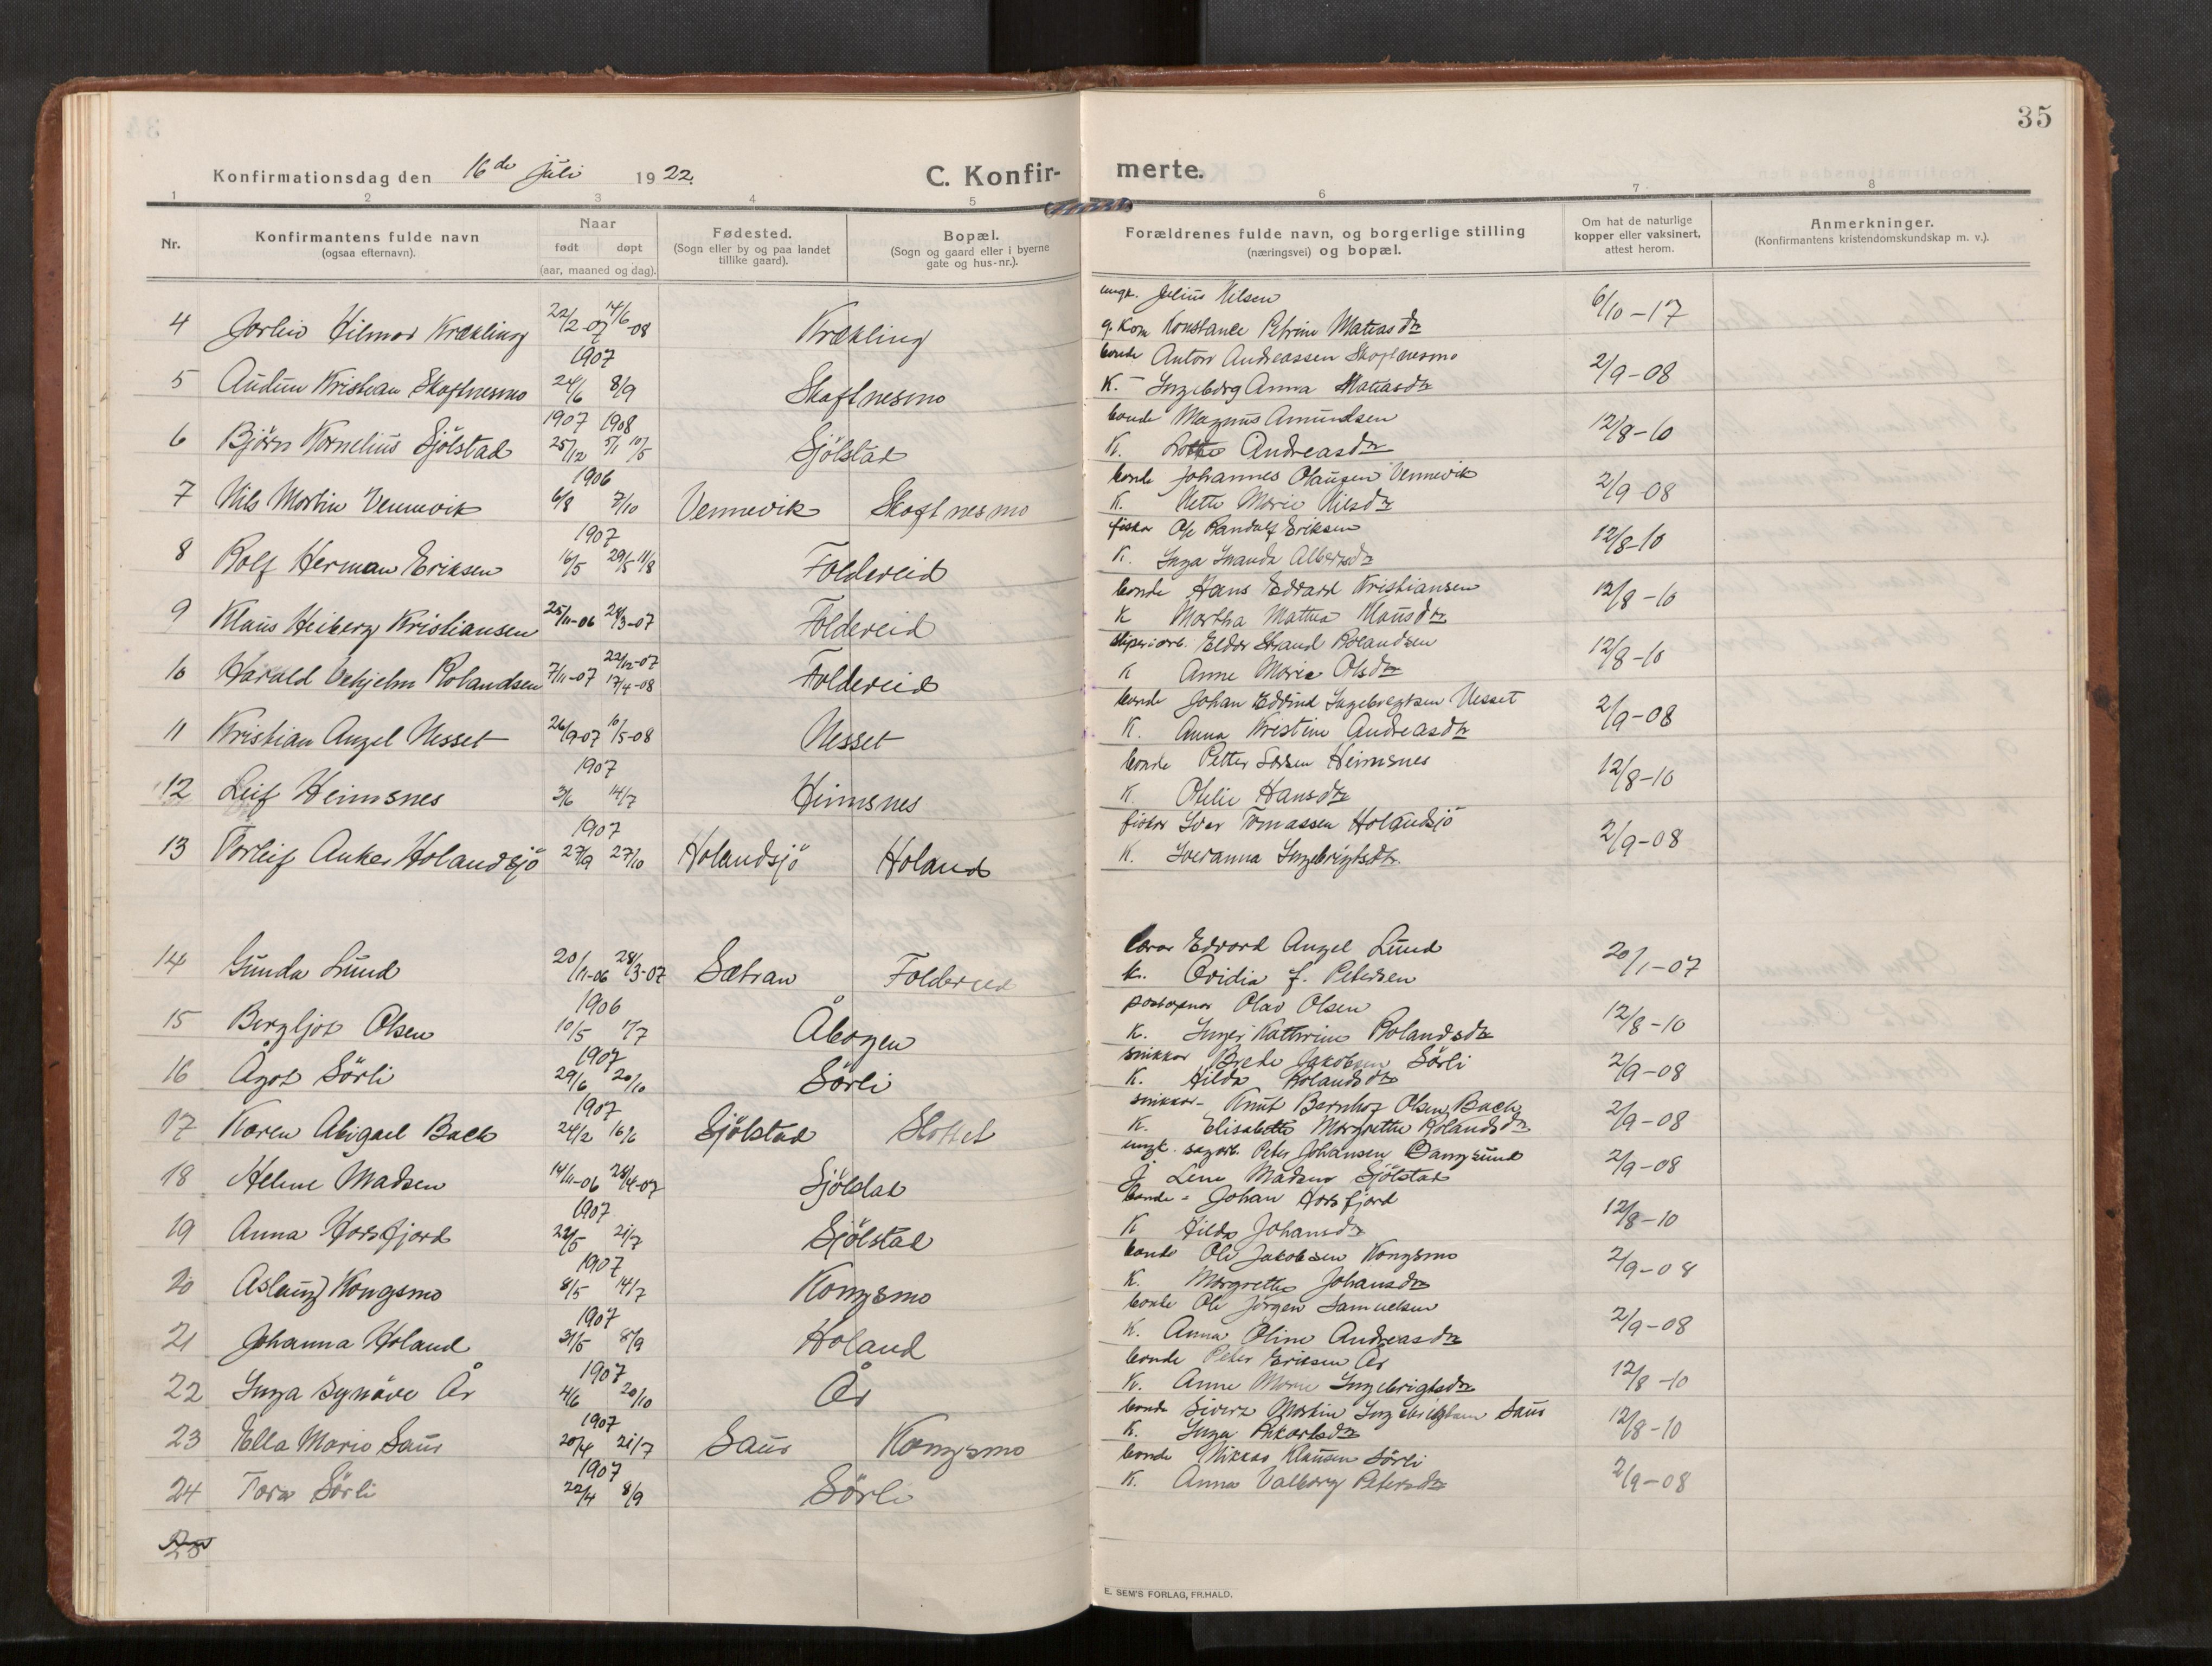 35
Konfirmationsdag den 16de juli 1922.
C. Konfir- merte.
1 2 3 4 5 6 7 8
Nr.
Konfirmantens fulde navn
(ogsaa efternavn).
Naar
født døpt
(aar, maaned og dag).
Fødested.
(Sogn eller by og paa landet
tillike gaard).
Bopæl.
(Sogn og gaard eller i byerne
gate og hus-nr.).
Forældrenes fulde navn, og borgerlige stilling
(næringsvei) og bopæl.
Om hat de naturlige
kopper eller vaksinert,
attest herom.
Anmerkninger.
(Konfirmantens kristendomskundskap m. v.).
4 Hilmar Krækling 22/2-07 14/6-08 Krækling ungk. Julius Nilsen 6/10-17
g. Kom Konstance Petrine Matiasdtr
1907 bonde Anton Andreassen Skaftnesmo
5 Audun Kristian Skaftnesmo 24/6 8/9 Skaftnesmo K. - Ingeborg Anna Matiasdtr 2/9-08
1907 1908 bonde Magnus Amundsen
6 Björn Kornelius Sjölstad 25/12 5/1 10/5 Sjölstad K. Andreasdtr 12/8-10
1906 bonde Johannes Olausen Vennevik
7 Nils Martin Vennevik 6/8 7/10 Vennevik Skaftnesmo K. Mette Marie Nilsdtr 2/9-08
1907 fisker Ole Randolf Eriksen
8 Rolf Herman Eriksen 16/5 29/5 11/8 Foldereid K. Inga Albertsdtr 12/8-10
bonde Hans Edvard Kristiansen
9 Klaus Heiberg Kristiansen 25/11-06 28/3-07 Foldereid K Martha Mattea Klausdtr 12/8-10
Eldor Strand Rolandsen
10 Harald Vehjelm Rolandsen 7/11-07 22/12-07 17/4-08 Foldereid K Anne Marie Olsdtr 12/8-10
bonde Johan Edvind Ingebregtsen Nesset
11 Kristian Angel Nesset 26/9-07 10/5-08 Nesset K. Anna Kristine Andreasdtr 2/9-08
1907 bonde Petter Larsen Heimsnes
12 Leif Heimsnes 3/6 14/7 Heimsnes K. Otelie Hansdtr 12/8-10
1907 fisker Iver Tomassen Holandsjö
13 Torleif Anker Holandsjö 27/9 27/10 Holandsjö Holand K. Iveranna Ingebrigtsdtr. 2/9-08
lærer Edvard Angel Lund
14 Gunda Lund 20/11-06 28/3-07 Sætran Foldereid K. Ovidia f. Petersen 20/1-07
1906 postopner Olav Olsen
15 Bergljot Olsen 10/5 1/7 Åbogen K. Inger Kathrine Rolandsdtr 12/8-10
1907 snikker Brede Jakobsen Sörli
16 Ågot Sörli 29/6 20/10 Sörli K. Hilda Rolandsdtr 2/9-08
1907 snikker- Knut Bernhof Olsen Bach
17 Karen Abigael Bach 24/2 16/6 Sjölstad Slottet K. Elisabeth Margrethe Rolandsdtr 2/9-08
ungk. sagarb. Peter Johansen
18 Helene Madsen 14/11-06 28/4-07 Sjölstad Lene Madsen Sjölstad 2/9-08
1907 bonde - Johan Horsfjord
19 Anna Horsfjord 22/5 21/7 Sjölstad K Hilda Johansdtr 12/8-10
1907 bonde Ole Jakobsen Kongsmo
20 Aslaug Kongsmo 8/5 14/7 Kongsmo K. Margrethe Johansdtr 2/9-08
1907 bonde Ole Jörgen Samuelsen
21 Johanna Holand 31/5 8/9 Holand K. Anna Oline Andreasdtr 2/9-08
1907 bonde Peter Eriksen År
22 Inga Synöve År 4/6 20/10 År K. Anne Marie Ingebrigtsdtr 12/8-10
1907 bonde Sivert Martin Ingebrigtsen Saur
23 Ella Marie Saur 20/4 21/7 Saur Kongsmo K. Inga Rikartsdtr 12/8-10
1907 bonde Mikkal Klausen Sörli
24 Tora Sörli 22/4 8/9 Sörli K. Anna Valborg Petersdtr 2/9-08
E. SEM'S FORLAG, FR.HALD.